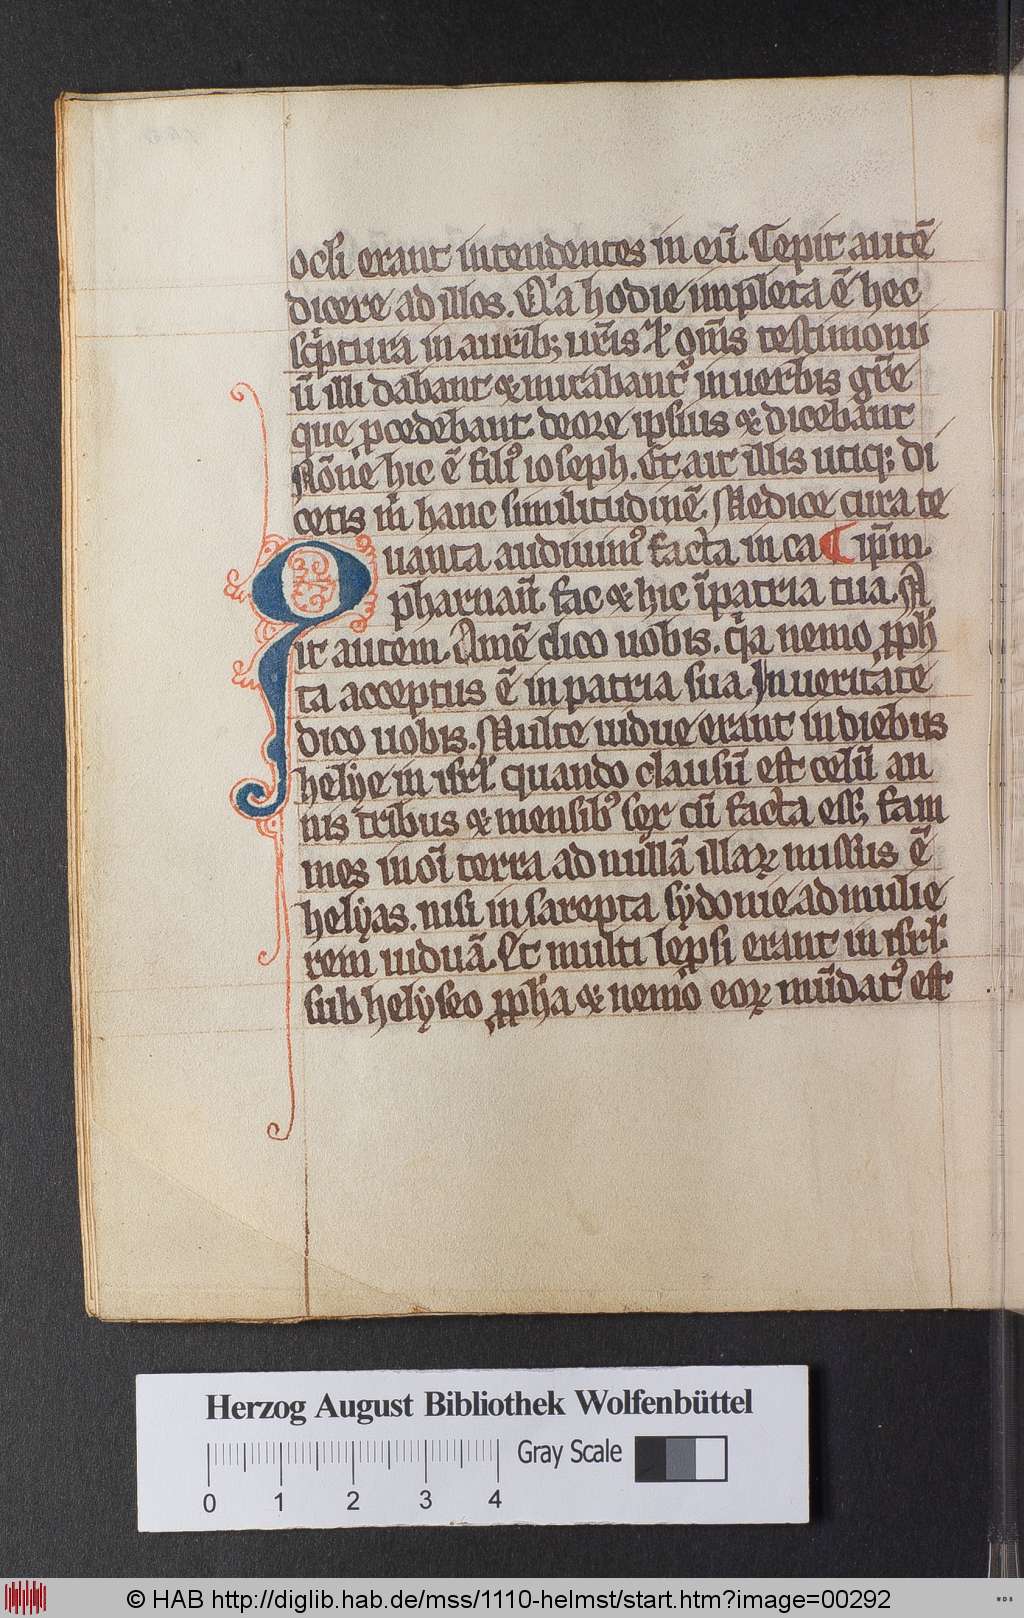 ocli erant intendentes in eū. Cepit autē
dicere ad illos. Qͥa hodie impleta ē hec
scͥptura in aurib; ur̄is ⁊ om̄s testimoniū
ū illi dabant & mirabantᷣ in uerbis gr̄e
que ꝓcedebant deore ipsius & dicebant
Nōne hic ē filiꝰ ioseph. Et ait illis utiqꝫ di
cetis m̄ hanc similitudinē. Medice cura te
ip̄m.
Quanta audiuimꝰ facta in ca
pharnaū. fac & hic ī patria tua. A
it autem. Amē dico uobis. qͥa nemo ꝓph
ta acceptus ē in patria sua. In ueritate
dico uobis. Multe uidue erant in diebus
helye in isrl̄ quando clausū est celū an
nis tribus & mensibꝰ sex cū facta ess; fam
mes in oī terra ad nullā illaꝝ missus ē
helyas. nisi in sarepta sydonie ad mulie
rem uiduā. Et multi lepsi erant in isrl̄.
sub helyseo ꝓph̄a & nemo eoꝝ mūdatꝰ est
Herzog August Bibliothek Wolfenbüttel
Gray Scale
0 1 2 3 4
© HAB http://diglib.hab.de/mss/1110-helmst/start.htm?image=00292